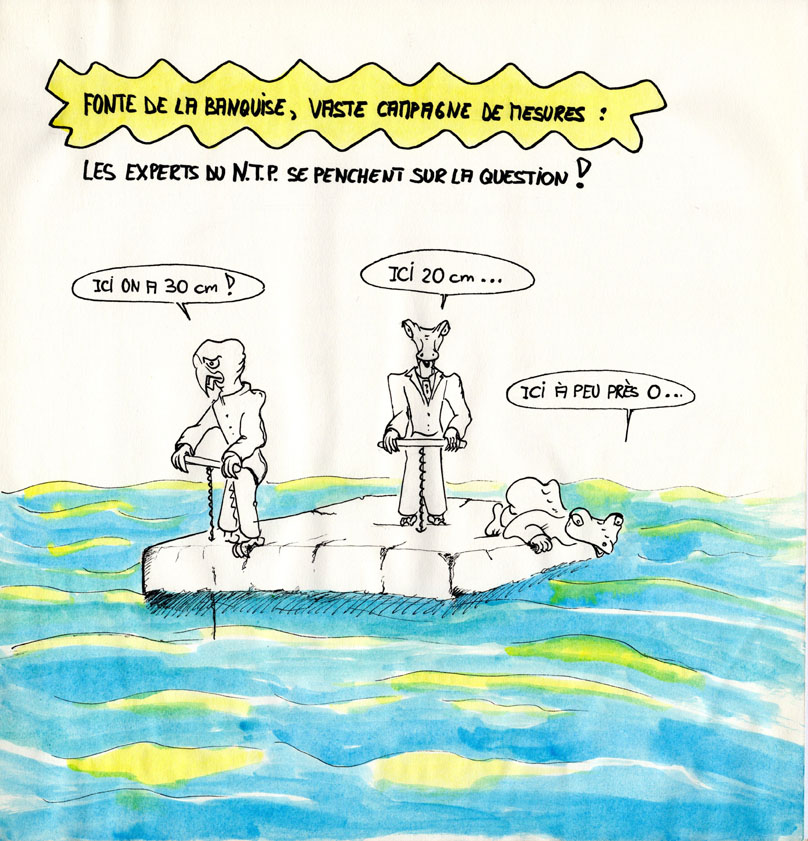 FONTE DE LA BANQUISE, VASTE CAMPAGNE DE MESURES :
LES EXPERTS DU N.T.P. SE PENCHENT SUR LA QUESTION !
ICI ON A 30 cm !
ICI 20 cm...
ICI À PEU PRÈS 0...